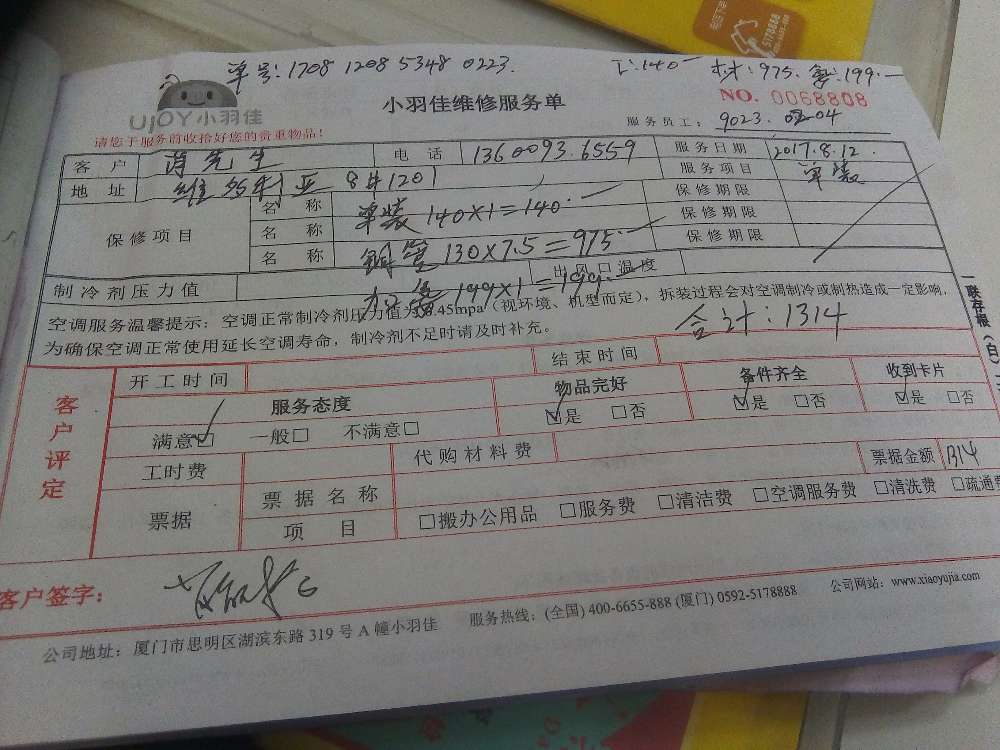 单号:1708 1208 5348 0223. 工:140 材:975. 氟:199.
UJOY小羽佳 小羽佳维修服务单 NO. 0068808
请您于服务前收拾好您的贵重物品! 服务员工: 9023. 02-04
客户 先生 电话 1360093.6559 服务日期 2017.8.12.
地址 维多利亚 8#1201 服务项目 单装
保修项目 名称 单装 140×1=140. 保修期限
名称 铜管 130×7.5=975 保修期限
名称 加氟 199×1=199. 保修期限
制冷剂压力值 出风口温度
空调服务温馨提示:空调正常制冷剂压力值为0.45mpa(视环境、机型而定),拆装过程会对空调制冷或制热造成一定影响,
为确保空调正常使用延长空调寿命,制冷剂不足时请及时补充。 合计:1314
一联存根(白)
客户评定 开工时间 结束时间
服务态度 物品完好 备件齐全 收到卡片
满意☑ 一般□ 不满意□ ☑是 □否 ☑是 □否 ☑是 □否
工时费 代购材料费
票据 票据名称 票据金额 1314
项目 □搬办公用品 □服务费 □清洁费 □空调服务费 □清洗费 □疏通费
客户签字:
公司地址:厦门市思明区湖滨东路 319 号 A 幢小羽佳 服务热线:(全国) 400-6655-888 (厦门) 0592-5178888 公司网站:www.xiaoyujia.com
5178888